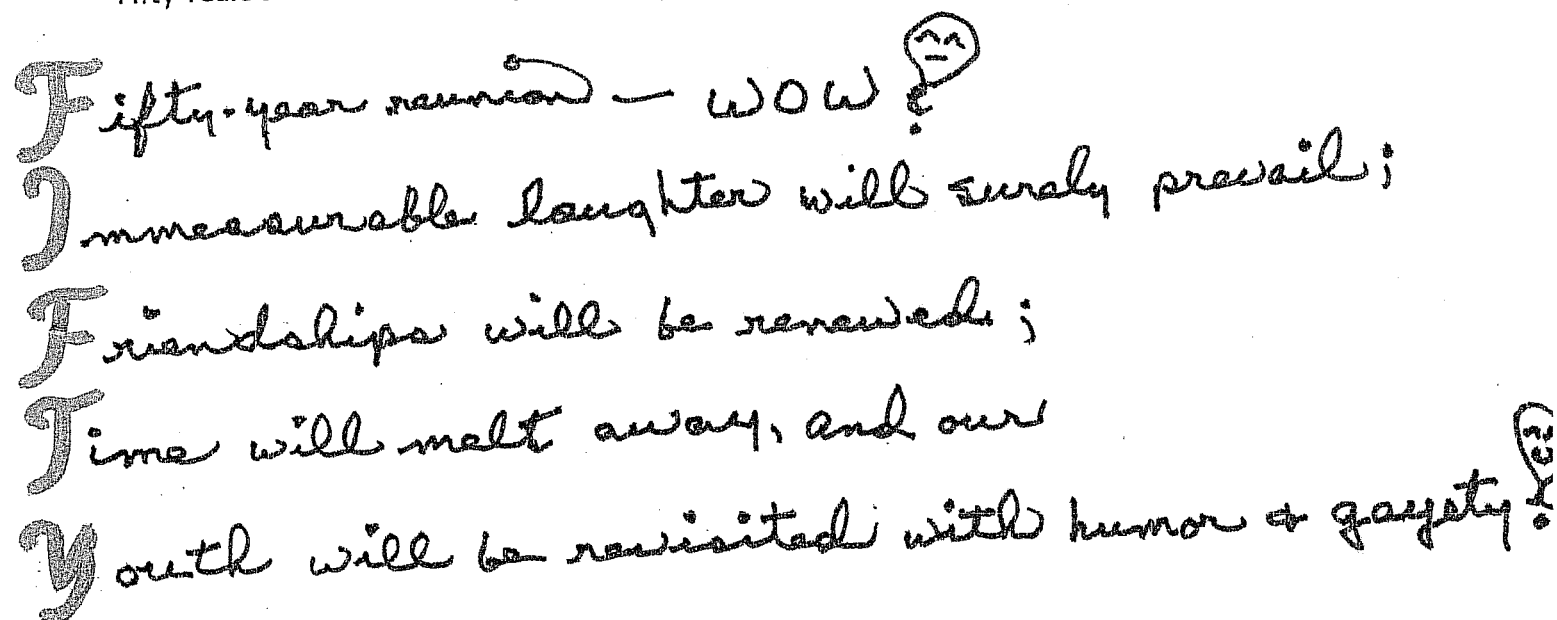 Fifty
Fifty-year reunion — WOW!
Immeasurable laughter will surely prevail;
Friendships will be renewed;
Time will melt away, and our
Youth will be revisited with humor & gayety!